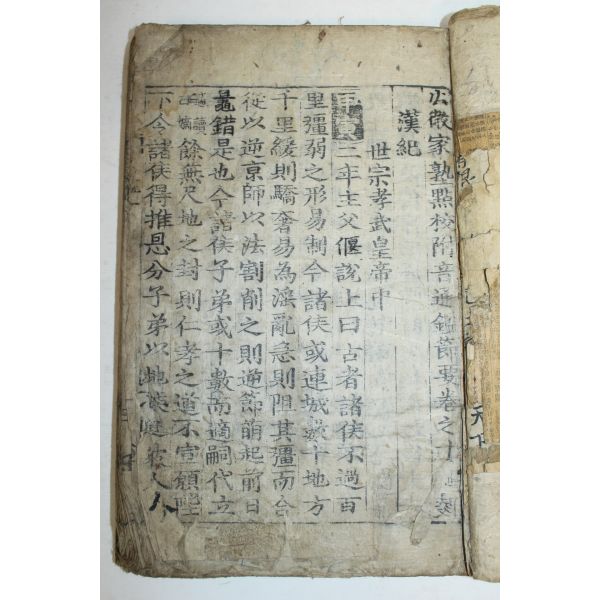 少微家塾點校附音通鑑節要卷之
漢紀
世宗孝武皇帝中
二年主父偃說上曰古者諸侯不過百
里彊弱之形易制今諸侯或連城數十地方
千里緩則驕奢易為淫亂急則阻其彊而合
從以逆京師以法割削之則逆節萌起前日
鼂錯是也今諸侯子弟或十數而適嗣代立
餘無尺地之封則仁孝之道不宣願陛
下令諸侯得推恩分子弟以地侯之彼人人